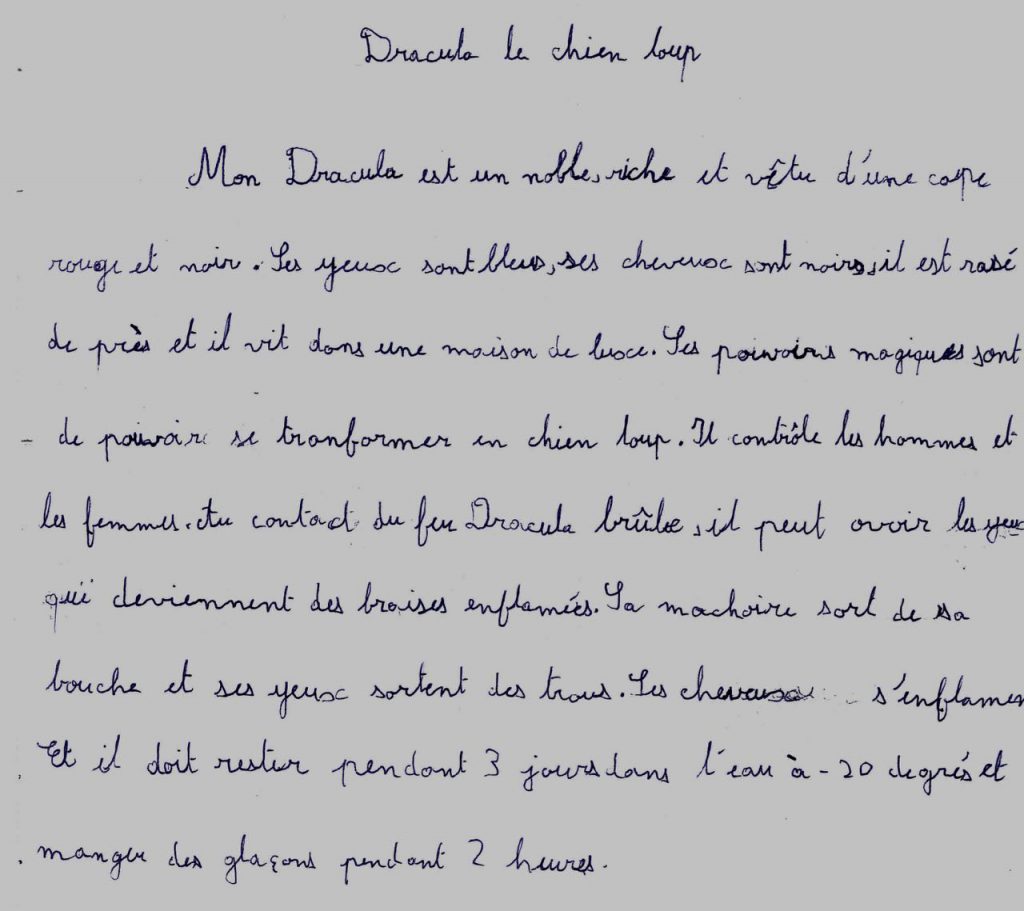 Dracula le chien loup
Mon Dracula est un noble, riche et vêtu d'une cape
rouge et noir. Ses yeux sont bleus, ses cheveux sont noirs, il est rasé
de près et il vit dans une maison de luxe. Ses pouvoirs magiques sont
de pouvoir se tranformer en chien loup. Il contrôle les hommes et
les femmes. Au contact du feu Dracula brûle, il peut avoir les yeux
qui deviennent des braises enflamées. Sa machoire sort de sa
bouche et ses yeux sortent des trous. Ses cheveux s'enflamen
Et il doit rester pendant 3 jours dans l'eau à -20 degrés et
manger des glaçons pendant 2 heures.